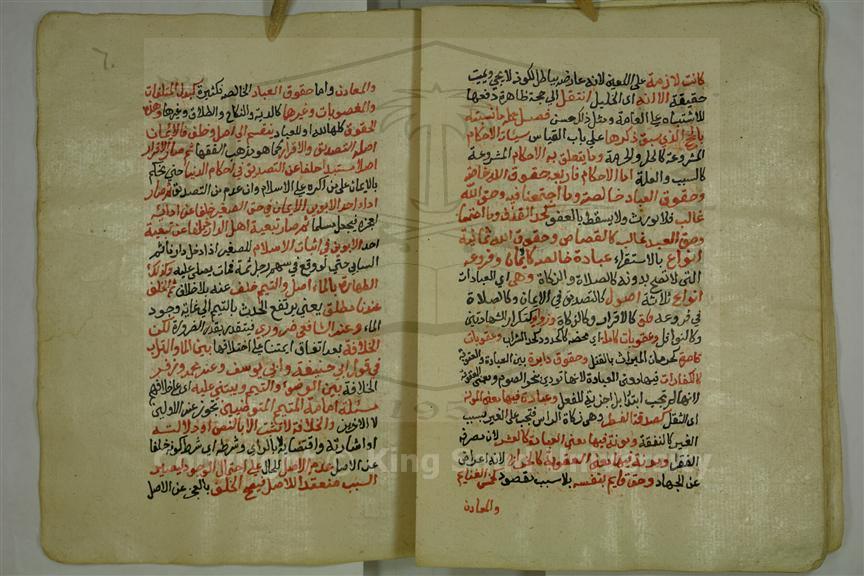 كانت لازمة على اللعنة لانه عارضه بباطل الكونه لا يحيي ويميت
حقيقة الا انه اى الخليل انتقل الى حجة ظاهرة دفعها
للاشتباه على العامة ومثل ذلك حسن فصل جملة ما ثبت
بالحجج الذى سبق ذكرها على باب القياس سببان الاحكام
المشروعة كالحل والحرمة وما يتعلق به الاحكام المشروعة
كالسبب والعلة اما الاحكام فاربعة حقوق الله خالصة
وحقوق العباد خالصة وما اجتمعا فيه وحق الله
غالب فلا يورث ولا يسقط بالعفو كحد القذف وما اجتمعا
وحق العبد غالب كالقصاص وحقوق الله ثمانية
انواع بالاستقراء عبادة خالصة كالايمان وفروعه
التى لا تصح بدونه كالصلاة والزكاة وهى اى العبادات
انواع ثلاثة اصول كالتصديق فى الايمان وكالصلاة
فى فروعه ولواحق كالاقرار وكالزكاة وزوائد كتكرار الشهادتين
وكالنوافل وعقوبات كاملة اى محضة كالحدود كحد الشراب وعقوبات
قاصرة كحرمان الميراث بالقتل وحقوق دايرة بين العبادة والعقوبة
كالكفارات فيها معنى العبادة لانها تودى بنحو الصوم ومعنى العقوبة
لانها لم تجب ابتداء بل اجزية للفعل وعبادة فيها معنى المونة
اى الثقل كصدقة الفطر وهى زكاة الراس فتجب على الغير بسبب
الغير كالنفقة ومونة فيها معنى العبادة كالعشر لان مصرفه
الفقراء ومونة فيها معنى العقوبة كالخراج لانه اعراض
عن الجهاد وحق قايم بنفسه بلا سبب مقصود كخمس الغنايم
والمعادن
والمعادن واما حقوق العباد الخالصة فكثيرة كبدل المتلفات
والمغصوبات وغيرها كالدية والنكاح والطلاق وغيرها وهذه
الحقوق كلها لله او للعباد تنقسم الى اصل وخلف فالايمان
اصله التصديق والاقرار كما هو مذهب الفقها ثم صار الاقرار
اصلا مستبدا خلفا عن التصديق فى احكام الدنيا حتى يحكم
بالايمان على من اكره على الاسلام وان عدم من التصديق ثم صار
اداء احد الابوين الايمان فى حق الصغير خلفا عن ادائه
لعجزه فيجعل مسلما ثم صار تبعية اهل الدار خلفا عن تبعية
احد الابوين فى اثبات الاسلام للصغير اذا دخل دارنا ثم
السابى حتى لو وقع فى سهم رجل ثمة فمات يصلى عليه وكذلك
الطهارة بالماء اصل والتيمم خلف عنه بلا خلاف ثم الخلف
عندنا مطلق يعنى يرتفع الحدث بالتيمم الى غاية وجود
الماء وعند الشافعى ضرورى فيتقدر بقدر الضرورة لكن
الخلافة بعد اتفاق ايمتنا على اطلاقها بين الماء والتراب
فى قول ابى حنيفة وابى يوسف وعند محمد وزفر
الخلافة بين الوضوء والتيمم ويبتنى عليه اى على خلافهم
مسئلة امامة المتيمم المتوضيين يجوز عند الاولين
لا الاخرين والخلافة لا تثبت الا بالنص او دلالته
او اشارته واقتضائه لا بالراى وشرطه اى شرط كونه خلفا
عن الاصل عدم الاصل للحال على احتمال الوجود ليصير
السبب منعقدا للاصل فيصح الخلف بالعجز عن الاصل